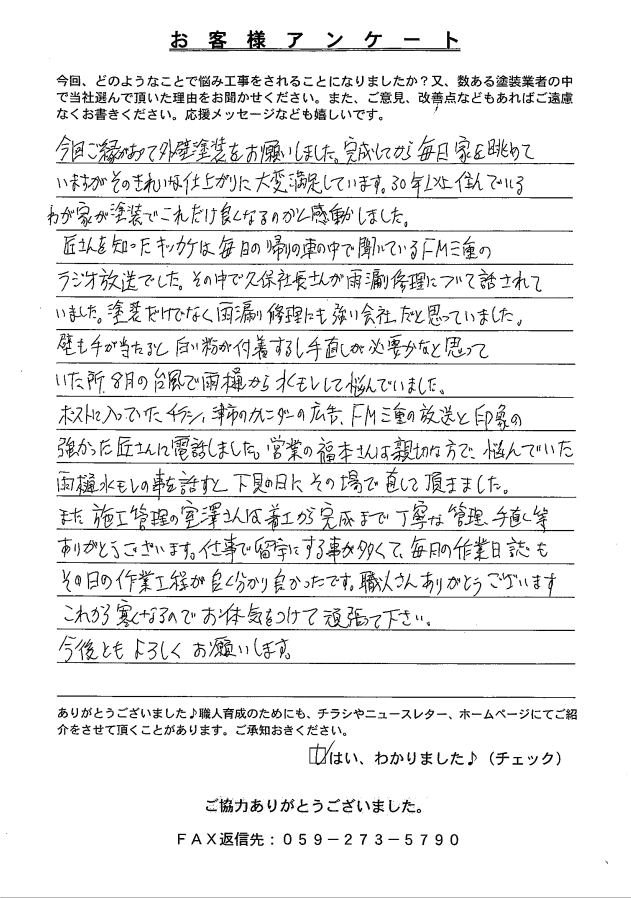 お客様アンケート
今回、どのようなことで悩み工事をされることになりましたか？又、数ある塗装業者の中
で当社選んで頂いた理由をお聞かせください。また、ご意見、改善点などもあればご遠慮
なくお書きください。応援メッセージなども嬉しいです。
今回ご縁があって外壁塗装をお願いしました。完成してから毎日家を眺めて
いますがそのきれいな仕上がりに大変満足しています。30年以上住んでいる
わが家が塗装でこれだけ良くなるのかと感動しました。
匠さんを知ったキッカケは毎日の帰りの車の中で聞いているFM三重の
ラジオ放送でした。その中で久保社長さんが雨漏り修理について話されて
いました。塗装だけでなく雨漏り修理にも強い会社だと思っていました。
壁も手が当たると白い粉が付着するし手直しが必要かなと思って
いた所、8月の台風で雨樋から水モレして悩んでいました。
ポストに入っていたチラシ、津市のカレンダーの広告、FM三重の放送と印象の
強かった匠さんに電話しました。営業の福本さんは親切な方で、悩んでいた
雨樋水モレの事を話すと下見の日にその場で直して頂きました。
また施工管理の室澤さんは、着工から完成まで丁寧な管理、手直し等
ありがとうございます。仕事で留守にする事が多くて、毎月の作業日誌も
その日の作業工程が良く分かり良かったです。職人さんありがとうございます
これから寒くなるのでお体気をつけて頑張って下さい。
今後ともよろしくお願いします。
ありがとうございました♪職人育成のためにも、チラシやニュースレター、ホームページにてご紹
介をさせて頂くことがあります。ご承知おきください。
はい、わかりました♪（チェック）
ご協力ありがとうございました。
ＦＡＸ返信先：０５９－２７３－５７９０